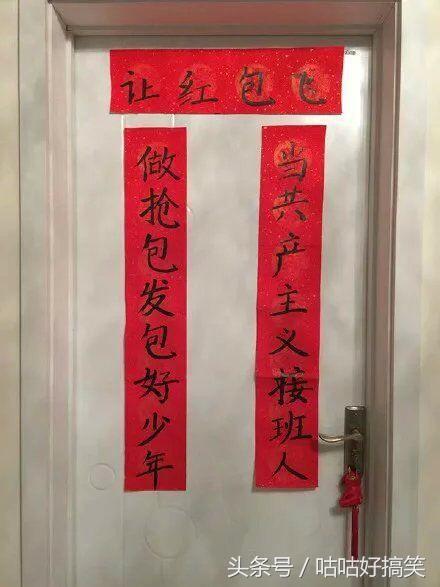 让红包飞
当共产主义接班人
做抢包发包好少年
头条号/咕咕好搞笑